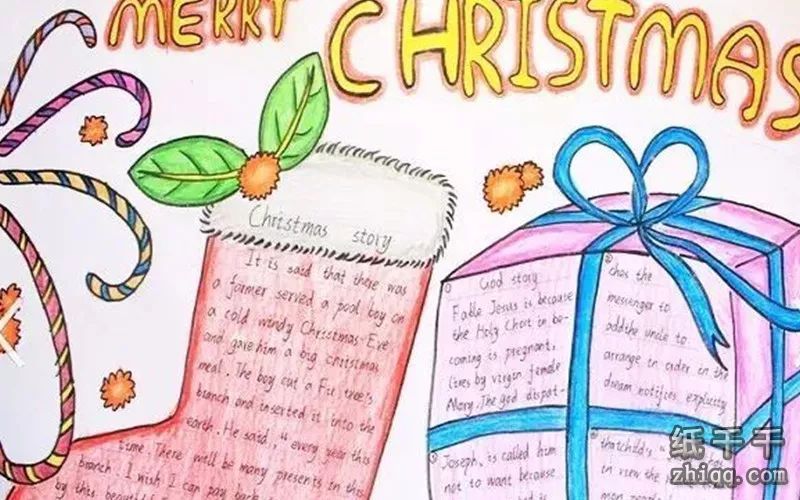 MERRY CHRISTMAS
Christmas story
It is said that there was
a farmer served a pool boy on
a cold windy Christmas Eve
and gave him a big christmas
meal. The boy cut a Fir tree's
branch and inserted it into the
earth. He said, "every year this
time. There will be many presents in this
branch. I wish I can pay back
by this
① God story
Fable Jesus is because
the Holy Chost in be-
coming is pregnant,
lires by virgin female
Mary. The god dispat-
② ches the
messenger to
add the uncle to
arrange in order in the
dream notifies explicitly
③ Joseph, is called him
not to want because
④ thatchild's
in view the
纸干干
zhiqq.com